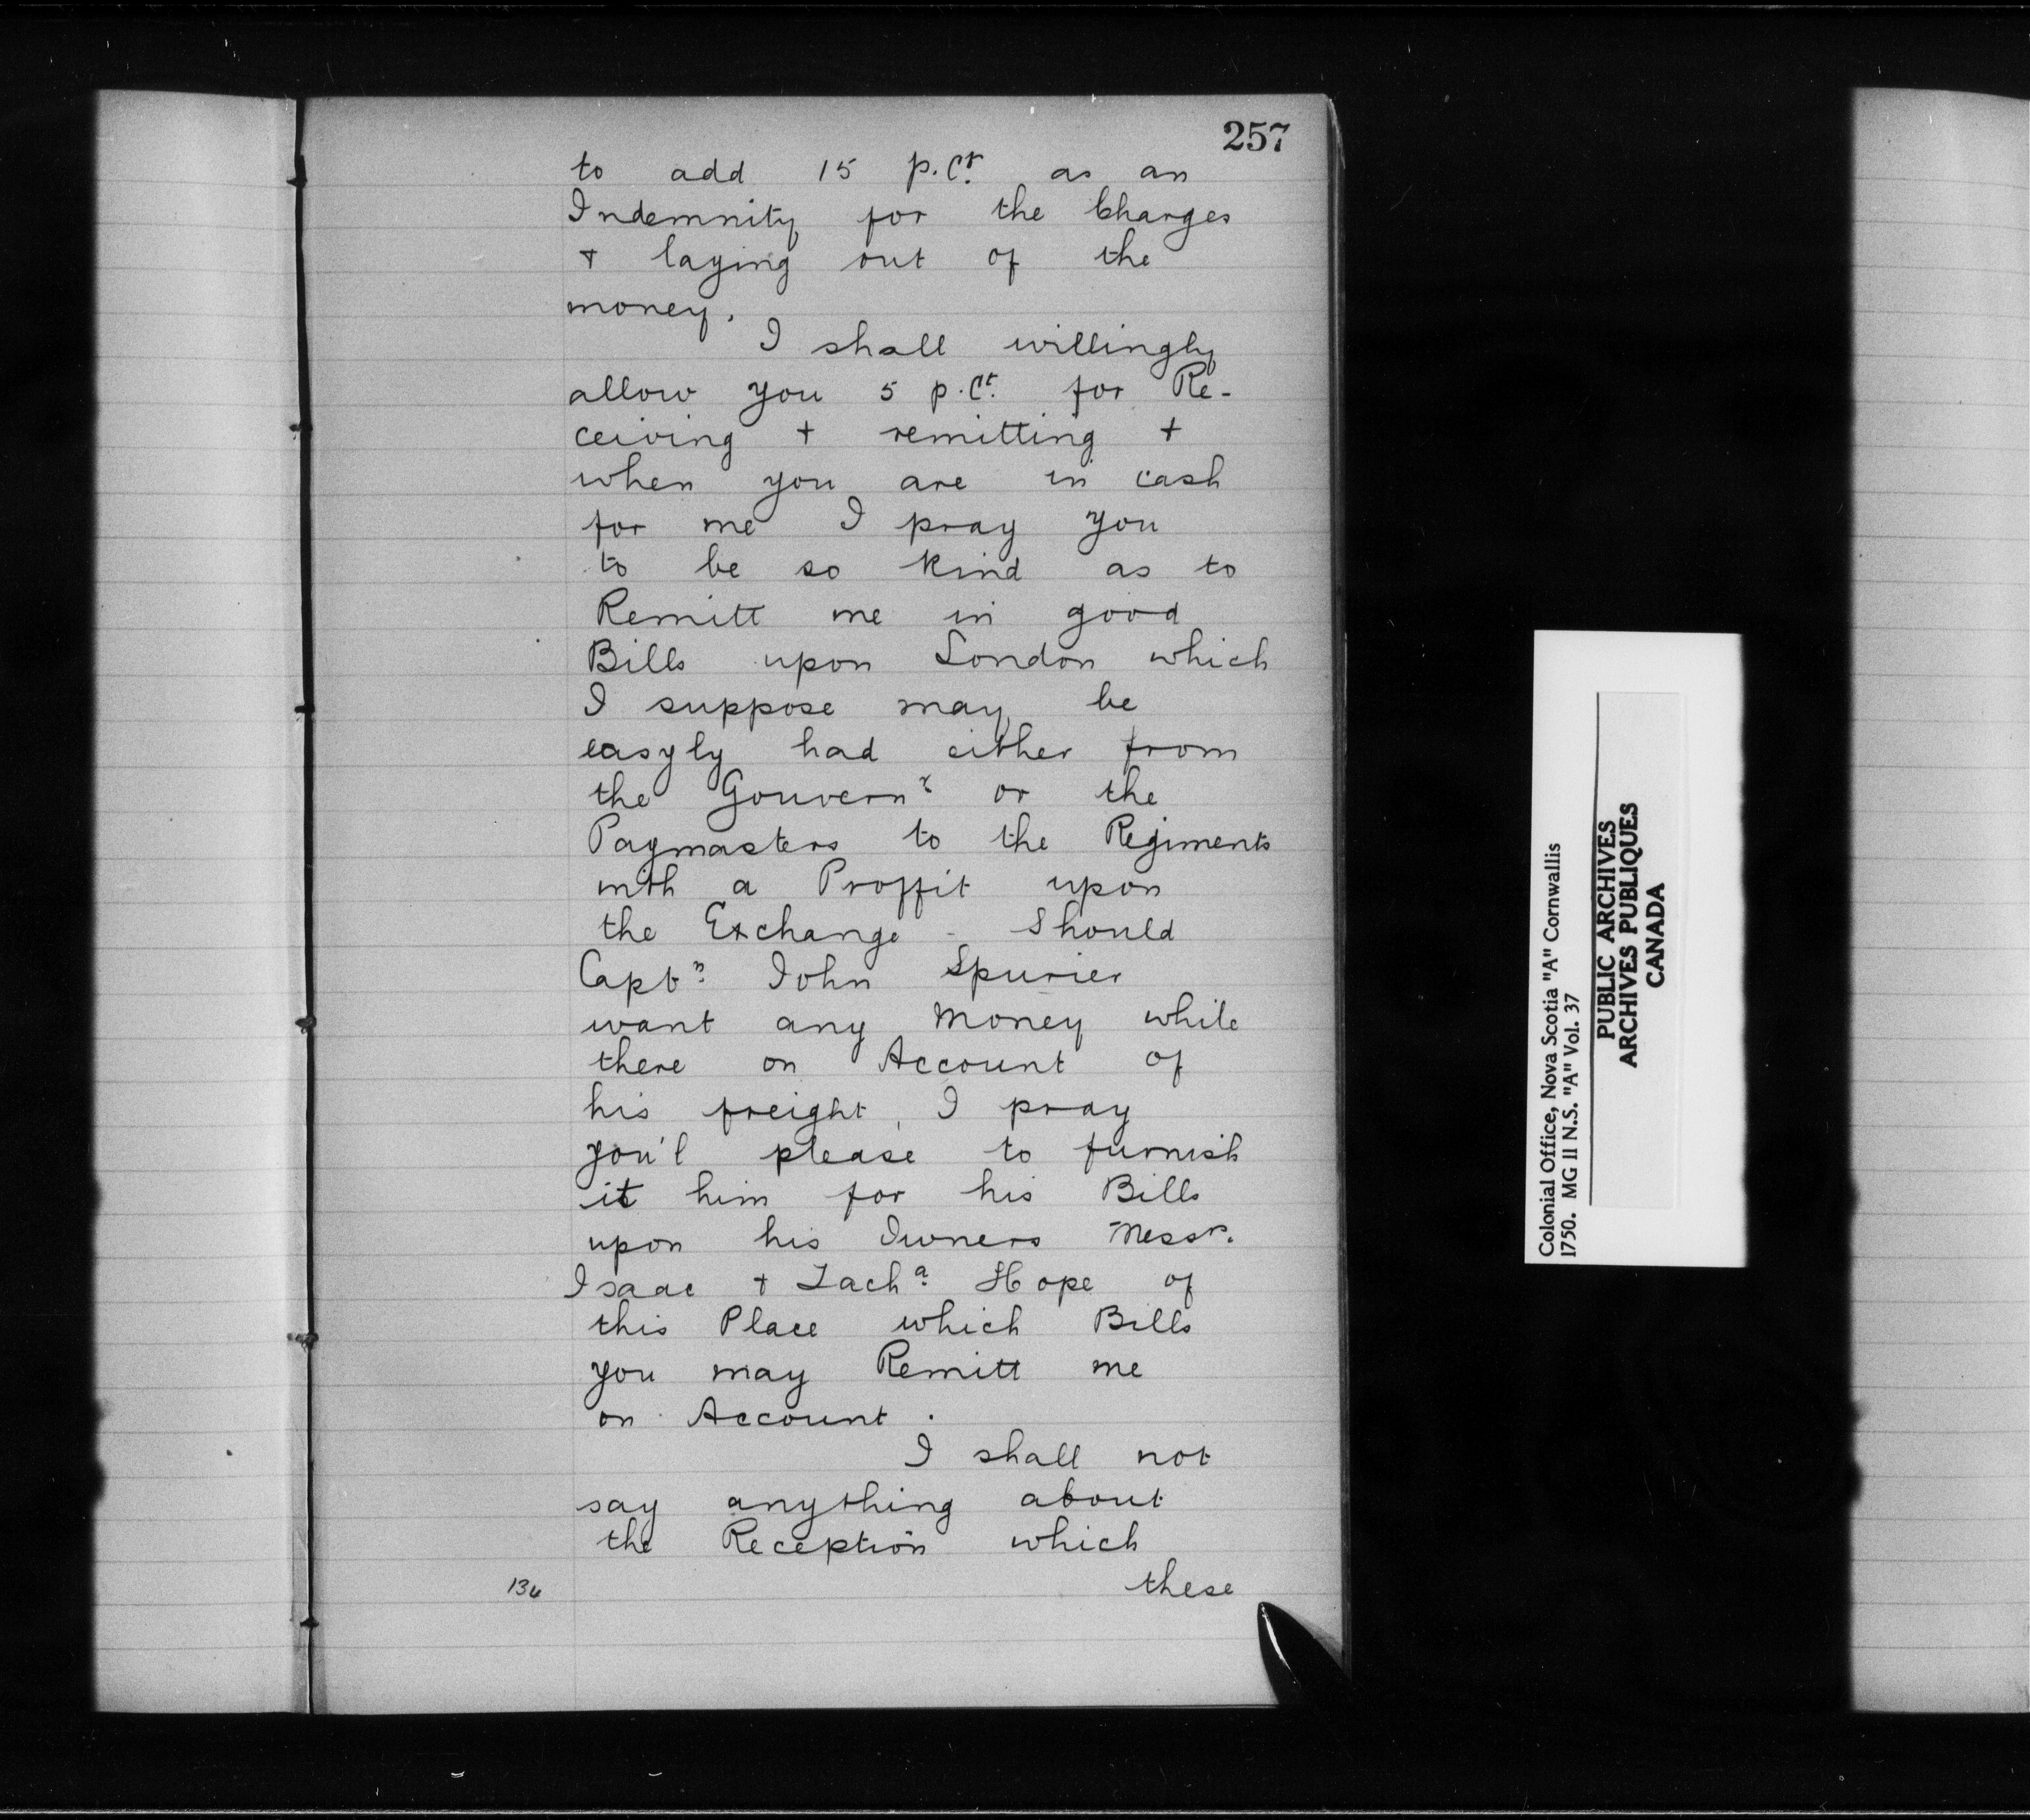 257
to add 15 p.Ct. as an
Indemnity for the Charges
+ laying out of the
money.
I shall willingly
allow you 5 p.Ct. for Re-
ceiving + remitting +
when you are in cash
for me I pray you
to be so kind as to
Remitt me in good
Bills upon London which
I suppose may be
easyly had either from
the Gouvernr. or the
Paymasters to the Regiments
with a Proffit upon
the Exchange - Should
Captn. John Spurier
want any Money while
there on Account of
his freight, I pray
you'l please to furnish
it him for his Bills
upon his Owners Messrs.
Isaac + Zacha. Hope of
this Place which Bills
you may Remitt me
on Account.
I shall not
say anything about
the Reception which
these
136
Colonial Office, Nova Scotia "A" Cornwallis
1750. MG 11 N.S. "A" Vol. 37
PUBLIC ARCHIVES
ARCHIVES PUBLIQUES
CANADA